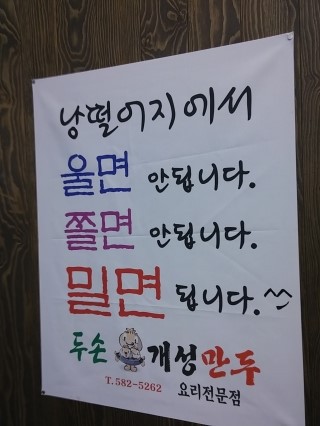 낭떨어지에서
울면 안됩니다.
쫄면 안됩니다.
밀면 됩니다.^^
두손 개성만두
T.582-5262 요리전문점